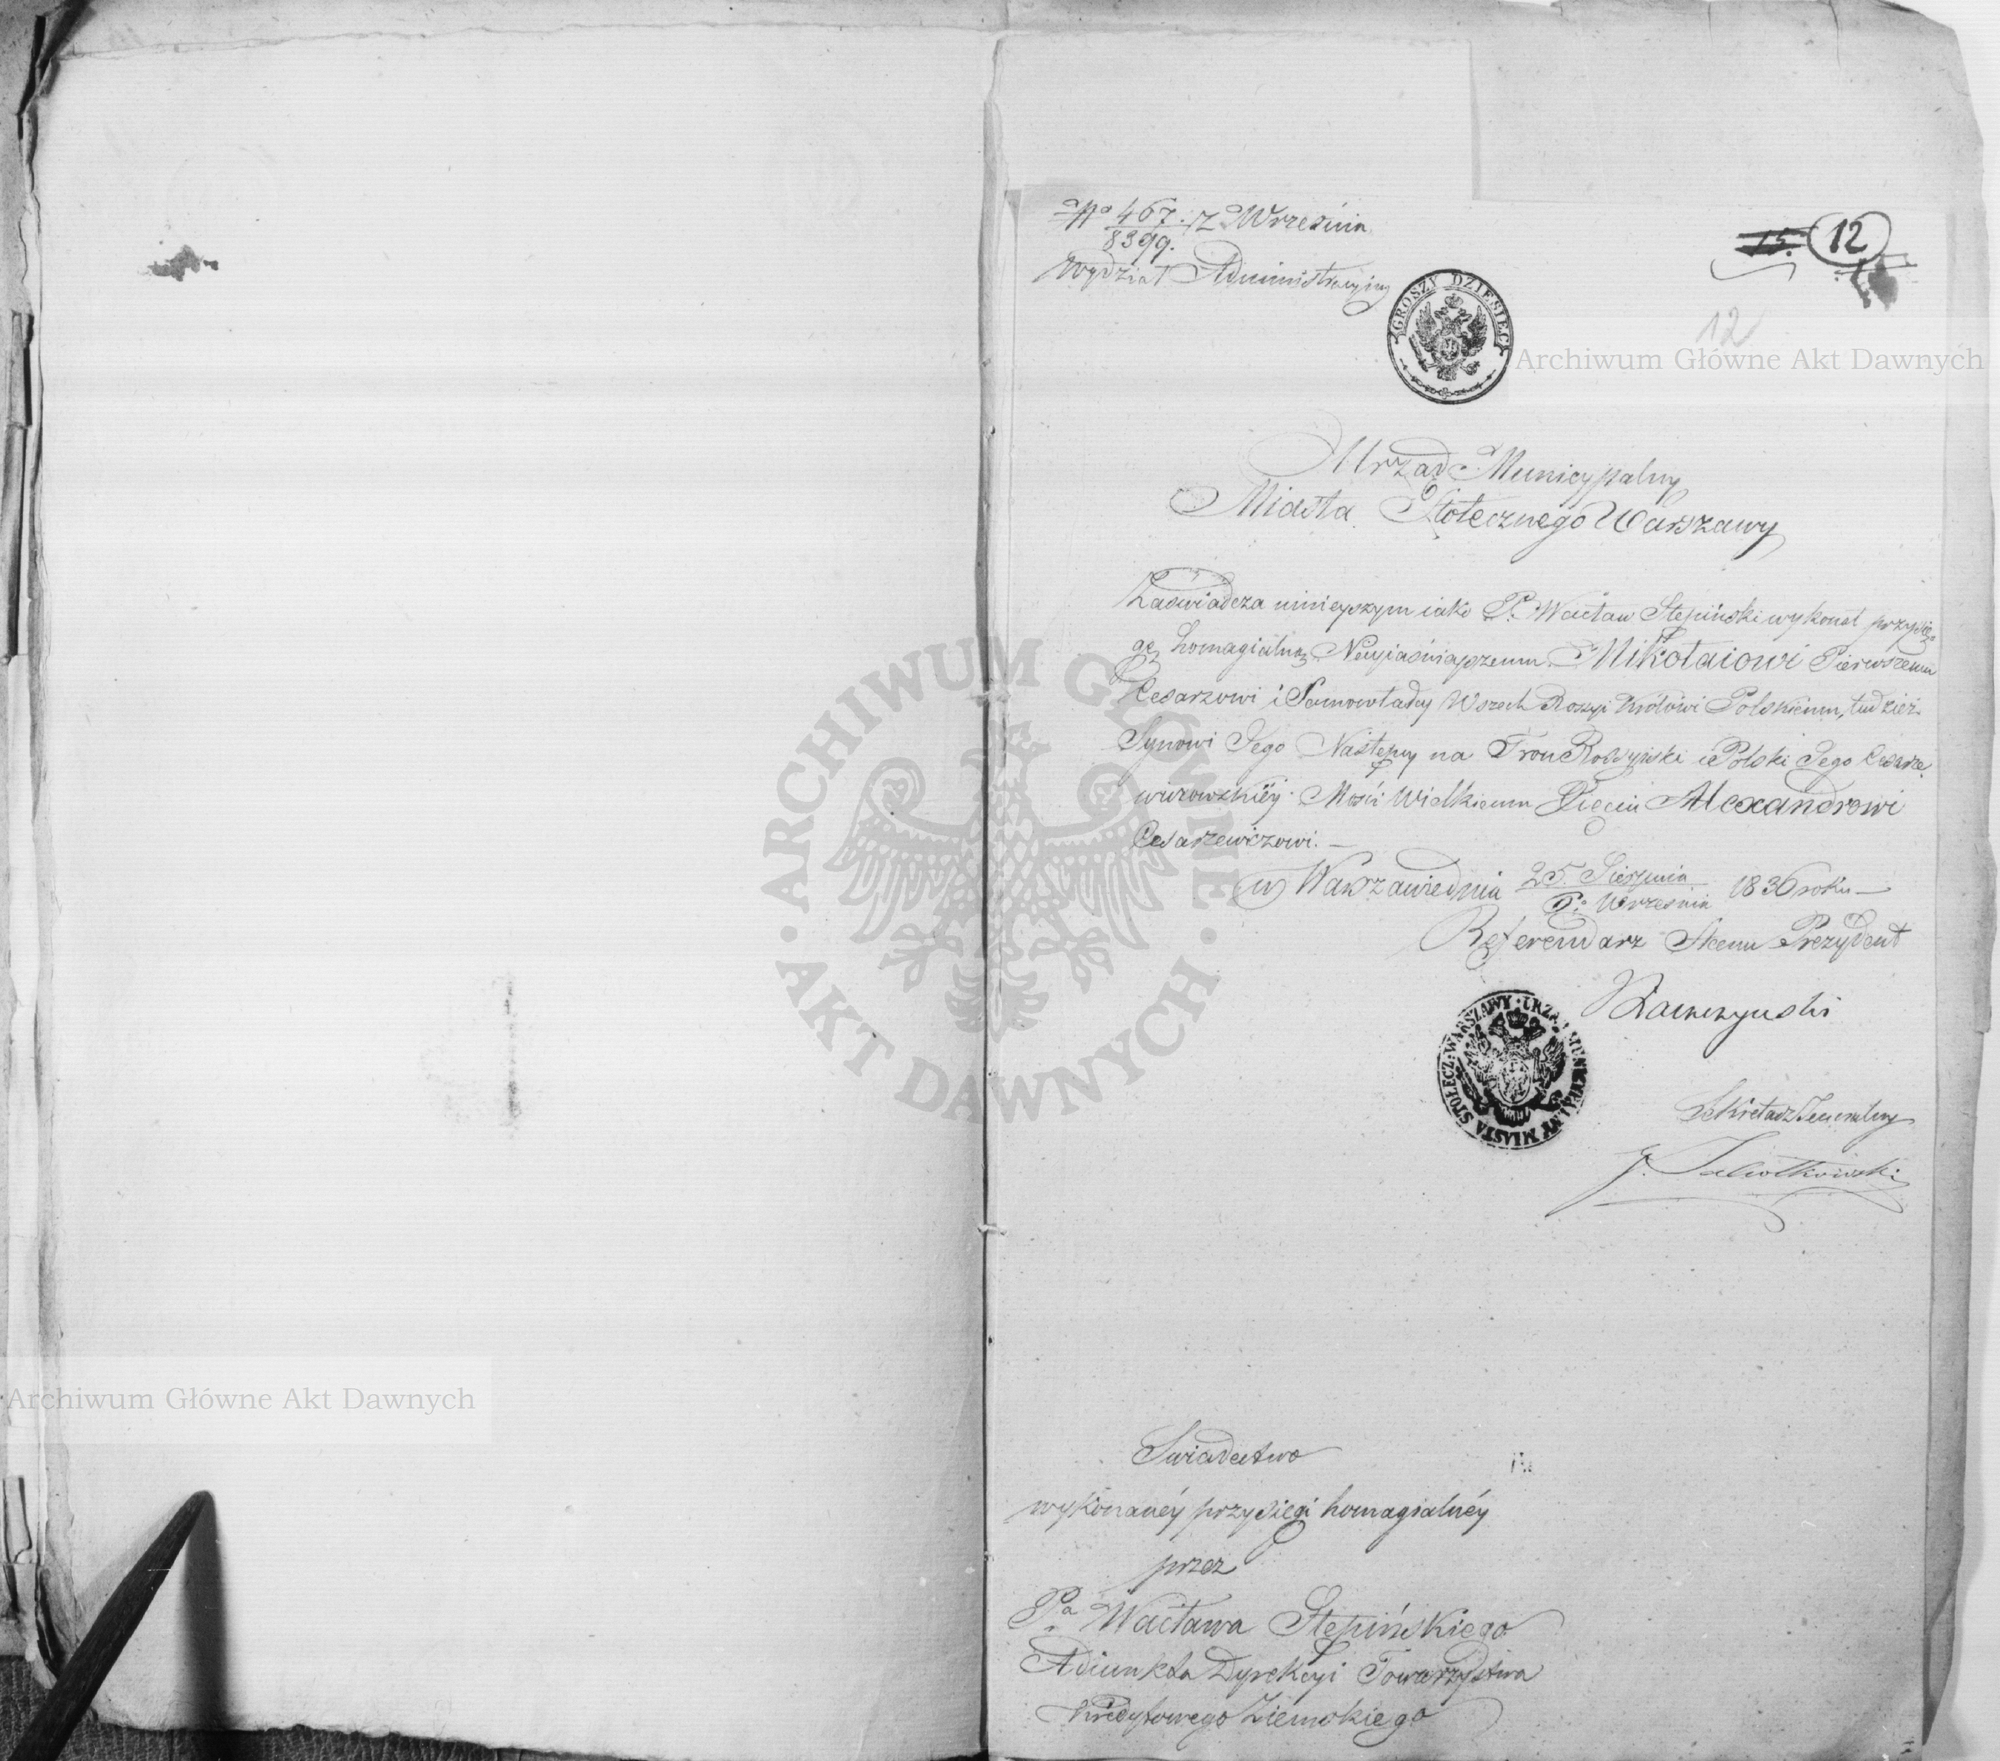 No 467. Z Września
8399.
Wydział Administracyiny
15. 12
GROSZY DZIESIĘĆ
12
Archiwum Główne Akt Dawnych
Urząd Municypalny
Miasta Stołecznego Warszawy
Zaświadcza ninieyszym iako P. Wacław Stępiński wykonał przysię-
gę homagialną Nayiaśnieyszemu Mikołaiowi Pierwszemu
Cesarzowi i Samowładcy Wszech Rossyi Królowi Polskiemu, tudzież
Synowi Jego Następcy na Tron Rossyiski i Polski Jego Cesarze-
wiczowskiéy Mości Wielkiemu Xięciu Alexandrowi
Cesarzewiczowi. —
w Warszawie dnia 25. Sierpnia 1836 roku —
Września
Referendarz Stanu Prezydent
URZĄD MUNICYPALNY MIASTA STOŁECZ: WARSZAWY
Sekretarz Jeneralny
ARCHIWUM GŁÓWNE · AKT DAWNYCH ·
Archiwum Główne Akt Dawnych
Swiadectwo
wykonanéy przysięgi homagialnéy
przez
Pa Wacława Stępińskiego
Adiunkta Dyrekcyi Towarzystwa
Kredytowego Ziemskiego